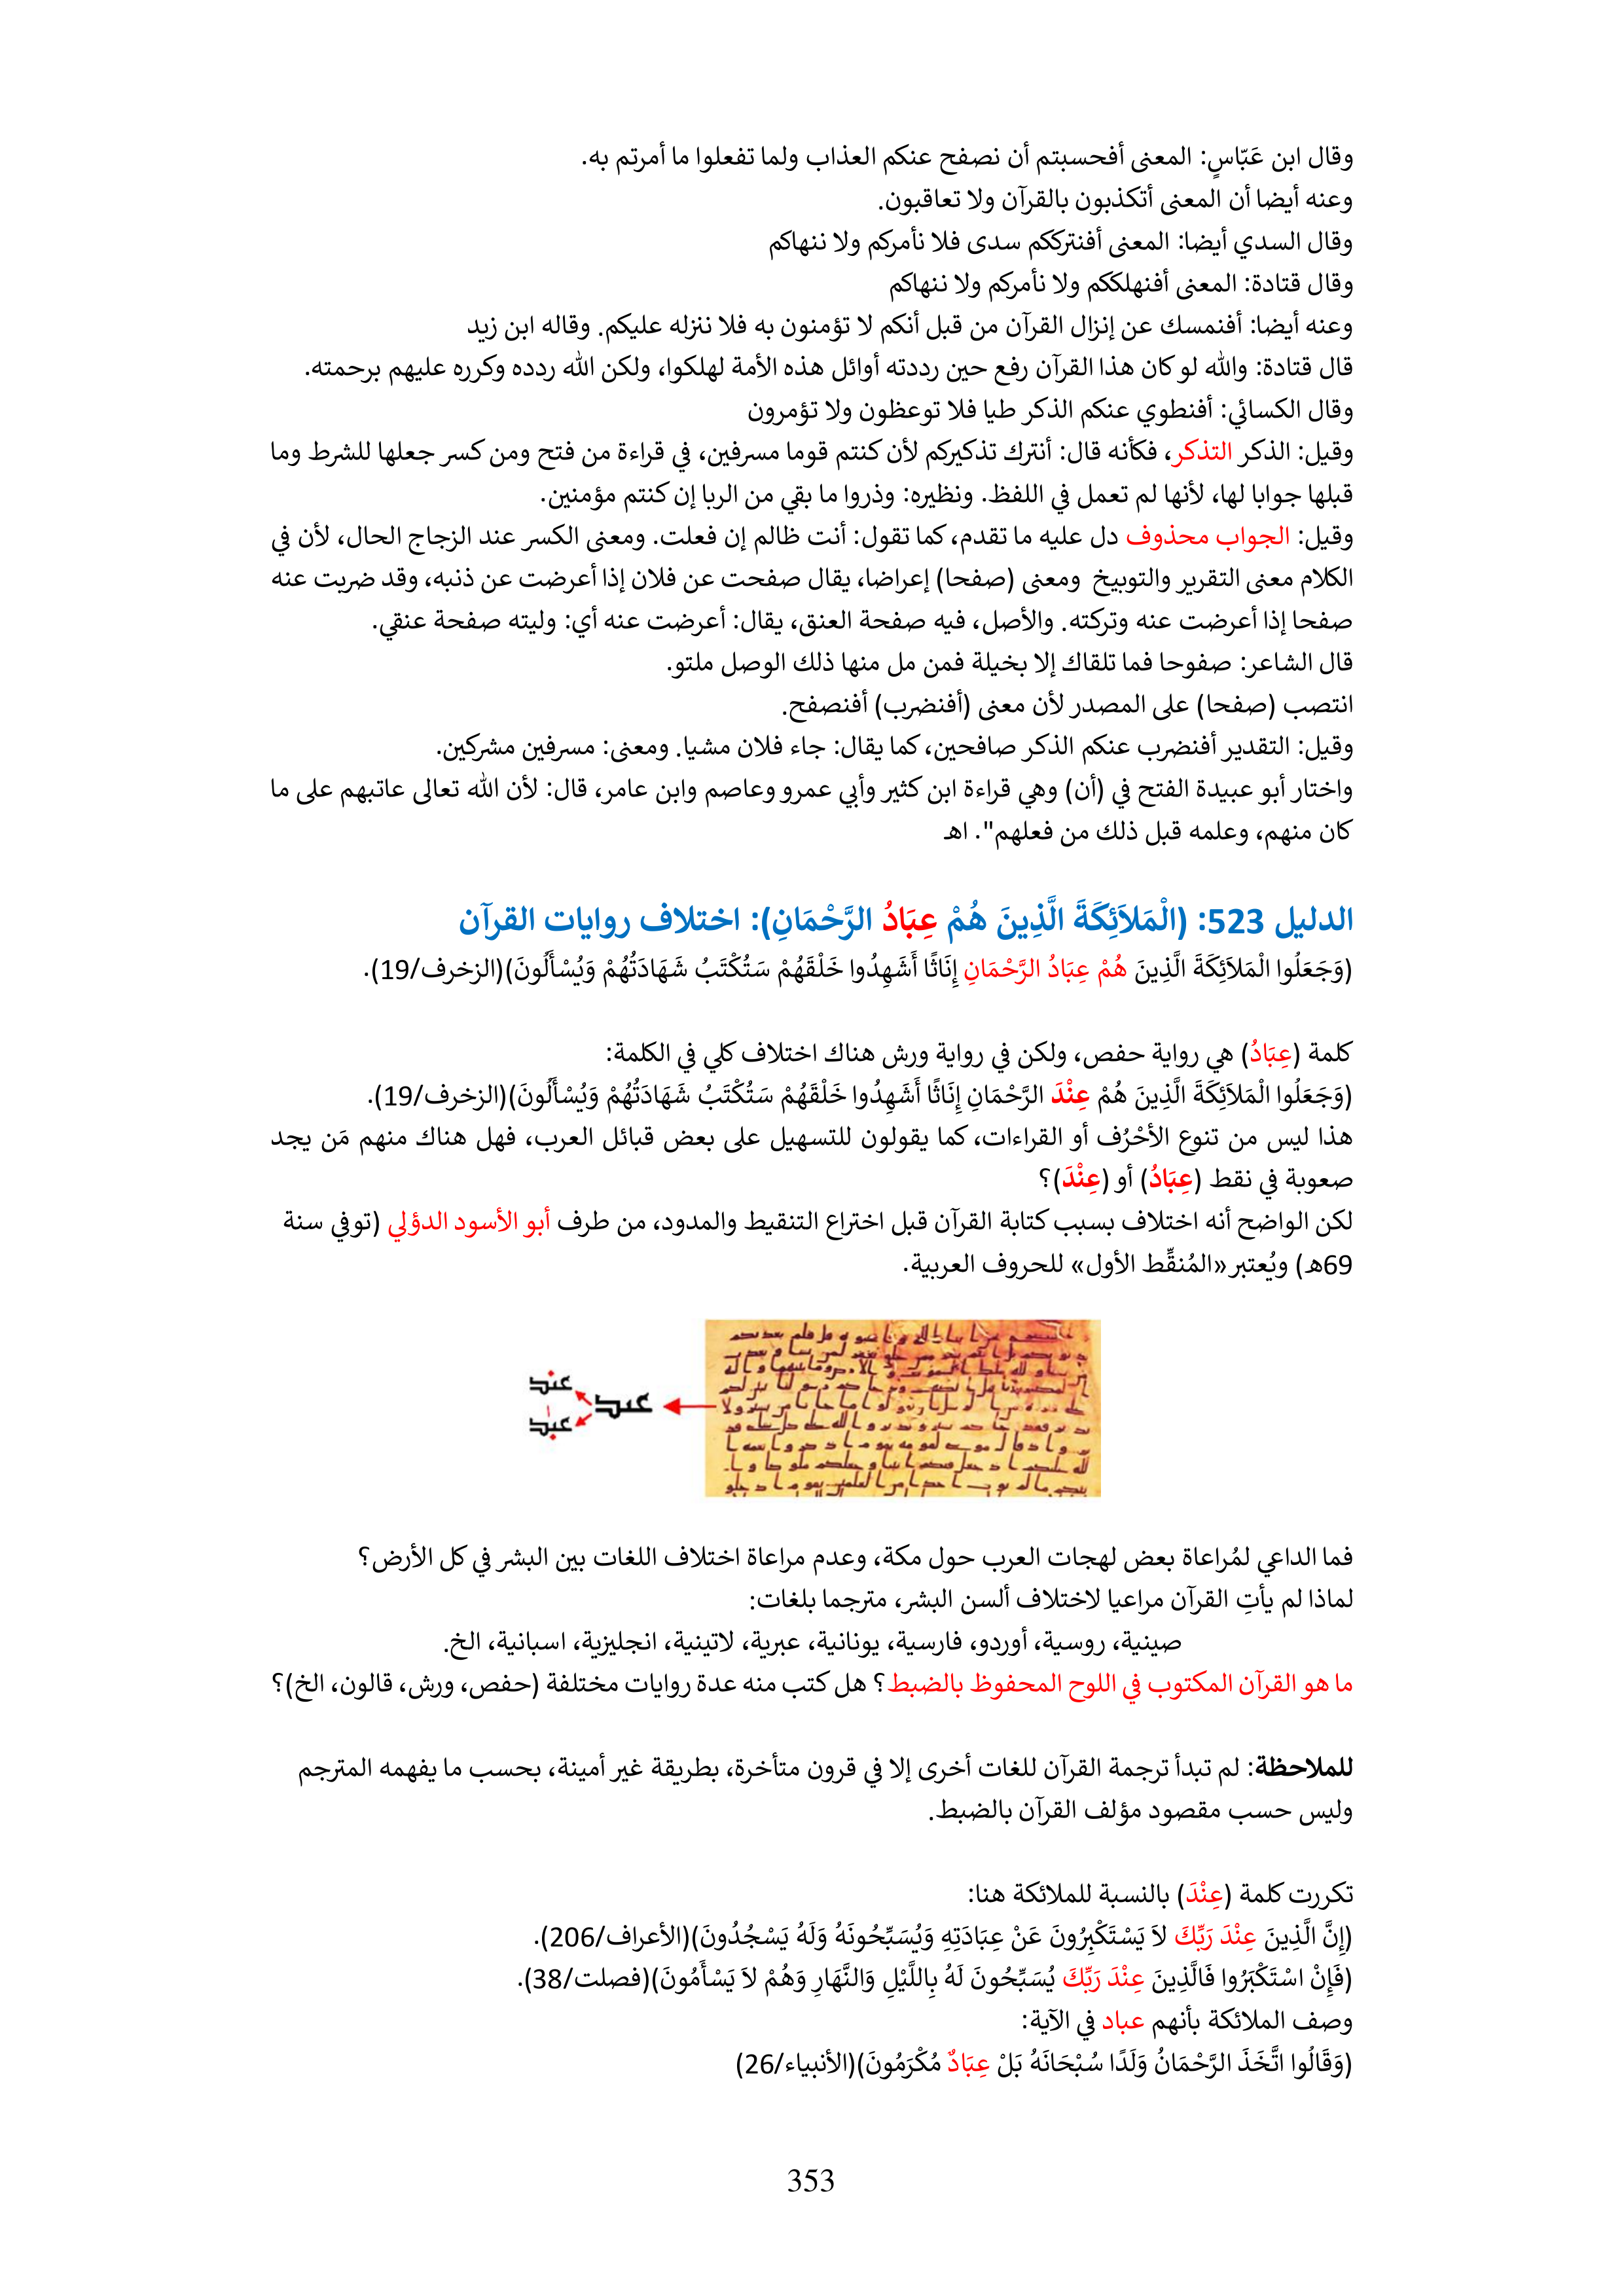 وقال ابن عَبّاسٍ: المعنى أفحسبتم أن نصفح عنكم العذاب ولما تفعلوا ما أمرتم به.
وعنه أيضا أن المعنى أتكذبون بالقرآن ولا تعاقبون.
وقال السدي أيضا: المعنى أفنترككم سدى فلا نأمركم ولا ننهاكم
وقال قتادة: المعنى أفنهلككم ولا نأمركم ولا ننهاكم
وعنه أيضا: أفنمسك عن إنزال القرآن من قبل أنكم لا تؤمنون به فلا ننزله عليكم. وقاله ابن زيد
قال قتادة: والله لو كان هذا القرآن رفع حين رددته أوائل هذه الأمة لهلكوا، ولكن الله ردده وكرره عليهم برحمته.
وقال الكسائي: أفنطوي عنكم الذكر طيا فلا توعظون ولا تؤمرون
وقيل: الذكر التذكر، فكأنه قال: أنترك تذكيركم لأن كنتم قوما مسرفين، في قراءة من فتح ومن كسر جعلها للشرط وما
قبلها جوابا لها، لأنها لم تعمل في اللفظ. ونظيره: وذروا ما بقي من الربا إن كنتم مؤمنين.
وقيل: الجواب محذوف دل عليه ما تقدم، كما تقول: أنت ظالم إن فعلت. ومعنى الكسر عند الزجاج الحال، لأن في
الكلام معنى التقرير والتوبيخ ومعنى (صفحا) إعراضا، يقال صفحت عن فلان إذا أعرضت عن ذنبه، وقد ضربت عنه
صفحا إذا أعرضت عنه وتركته. والأصل، فيه صفحة العنق، يقال: أعرضت عنه أي: وليته صفحة عنقي.
قال الشاعر: صفوحا فما تلقاك إلا بخيلة فمن مل منها ذلك الوصل ملتو.
انتصب (صفحا) على المصدر لأن معنى (أفنضرب) أفنصفح.
وقيل: التقدير أفنضرب عنكم الذكر صافحين، كما يقال: جاء فلان مشيا. ومعنى: مسرفين مشركين.
واختار أبو عبيدة الفتح في (أن) وهي قراءة ابن كثير وأبي عمرو وعاصم وابن عامر، قال: لأن الله تعالى عاتبهم على ما
كان منهم، وعلمه قبل ذلك من فعلهم". اهـ
الدليل 523: (الْمَلاَئِكَةَ الَّذِينَ هُمْ عِبَادُ الرَّحْمَانِ): اختلاف روايات القرآن
(وَجَعَلُوا الْمَلاَئِكَةَ الَّذِينَ هُمْ عِبَادُ الرَّحْمَانِ إِنَاثًا أَشَهِدُوا خَلْقَهُمْ سَتُكْتَبُ شَهَادَتُهُمْ وَيُسْأَلُونَ)(الزخرف/19).
كلمة (عِبَادُ) هي رواية حفص، ولكن في رواية ورش هناك اختلاف كلي في الكلمة:
(وَجَعَلُوا الْمَلاَئِكَةَ الَّذِينَ هُمْ عِنْدَ الرَّحْمَانِ إِنَاثًا أَشَهِدُوا خَلْقَهُمْ سَتُكْتَبُ شَهَادَتُهُمْ وَيُسْأَلُونَ)(الزخرف/19).
هذا ليس من تنوع الأحْرُف أو القراءات، كما يقولون للتسهيل على بعض قبائل العرب، فهل هناك منهم مَن يجد
صعوبة في نقط (عِبَادُ) أو (عِنْدَ)؟
لكن الواضح أنه اختلاف بسبب كتابة القرآن قبل اختراع التنقيط والمدود، من طرف أبو الأسود الدؤلي (توفي سنة
69هـ) ويُعتبر «المُنقِّط الأول» للحروف العربية.
عند
عبد
فما الداعي لمُراعاة بعض لهجات العرب حول مكة، وعدم مراعاة اختلاف اللغات بين البشر في كل الأرض؟
لماذا لم يأتِ القرآن مراعيا لاختلاف ألسن البشر، مترجما بلغات:
صينية، روسية، أوردو، فارسية، يونانية، عبرية، لاتينية، انجليزية، اسبانية، الخ.
ما هو القرآن المكتوب في اللوح المحفوظ بالضبط؟ هل كتب منه عدة روايات مختلفة (حفص، ورش، قالون، الخ)؟
للملاحظة: لم تبدأ ترجمة القرآن للغات أخرى إلا في قرون متأخرة، بطريقة غير أمينة، بحسب ما يفهمه المترجم
وليس حسب مقصود مؤلف القرآن بالضبط.
تكررت كلمة (عِنْدَ) بالنسبة للملائكة هنا:
(إِنَّ الَّذِينَ عِنْدَ رَبِّكَ لاَ يَسْتَكْبِرُونَ عَنْ عِبَادَتِهِ وَيُسَبِّحُونَهُ وَلَهُ يَسْجُدُونَ)(الأعراف/206).
(فَإِنْ اسْتَكْبَرُوا فَالَّذِينَ عِنْدَ رَبِّكَ يُسَبِّحُونَ لَهُ بِاللَّيْلِ وَالنَّهَارِ وَهُمْ لاَ يَسْأَمُونَ)(فصلت/38).
وصف الملائكة بأنهم عباد في الآية:
(وَقَالُوا اتَّخَذَ الرَّحْمَانُ وَلَدًا سُبْحَانَهُ بَلْ عِبَادٌ مُكْرَمُونَ)(الأنبياء/26)
353